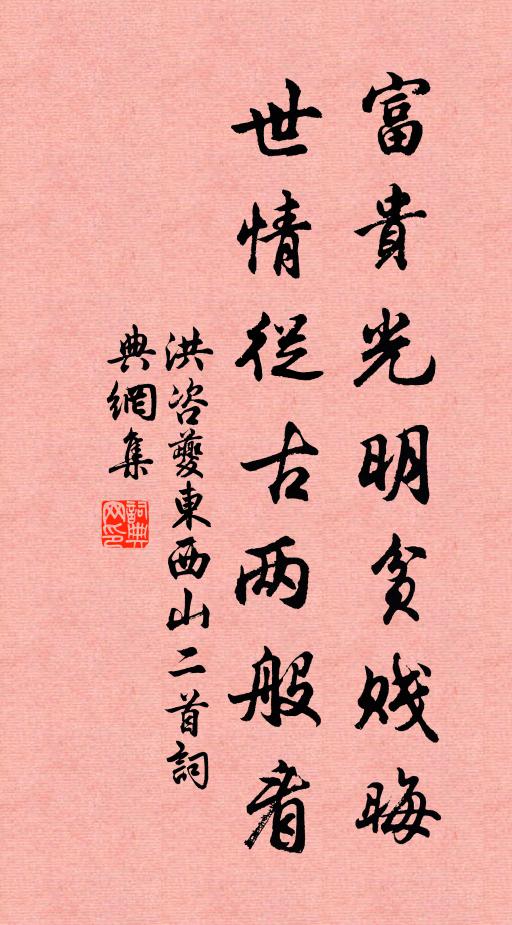 富貴光明貧賤晦
世情從古两般看
洪咨夔東西山二首詞
典網集
詞典网印